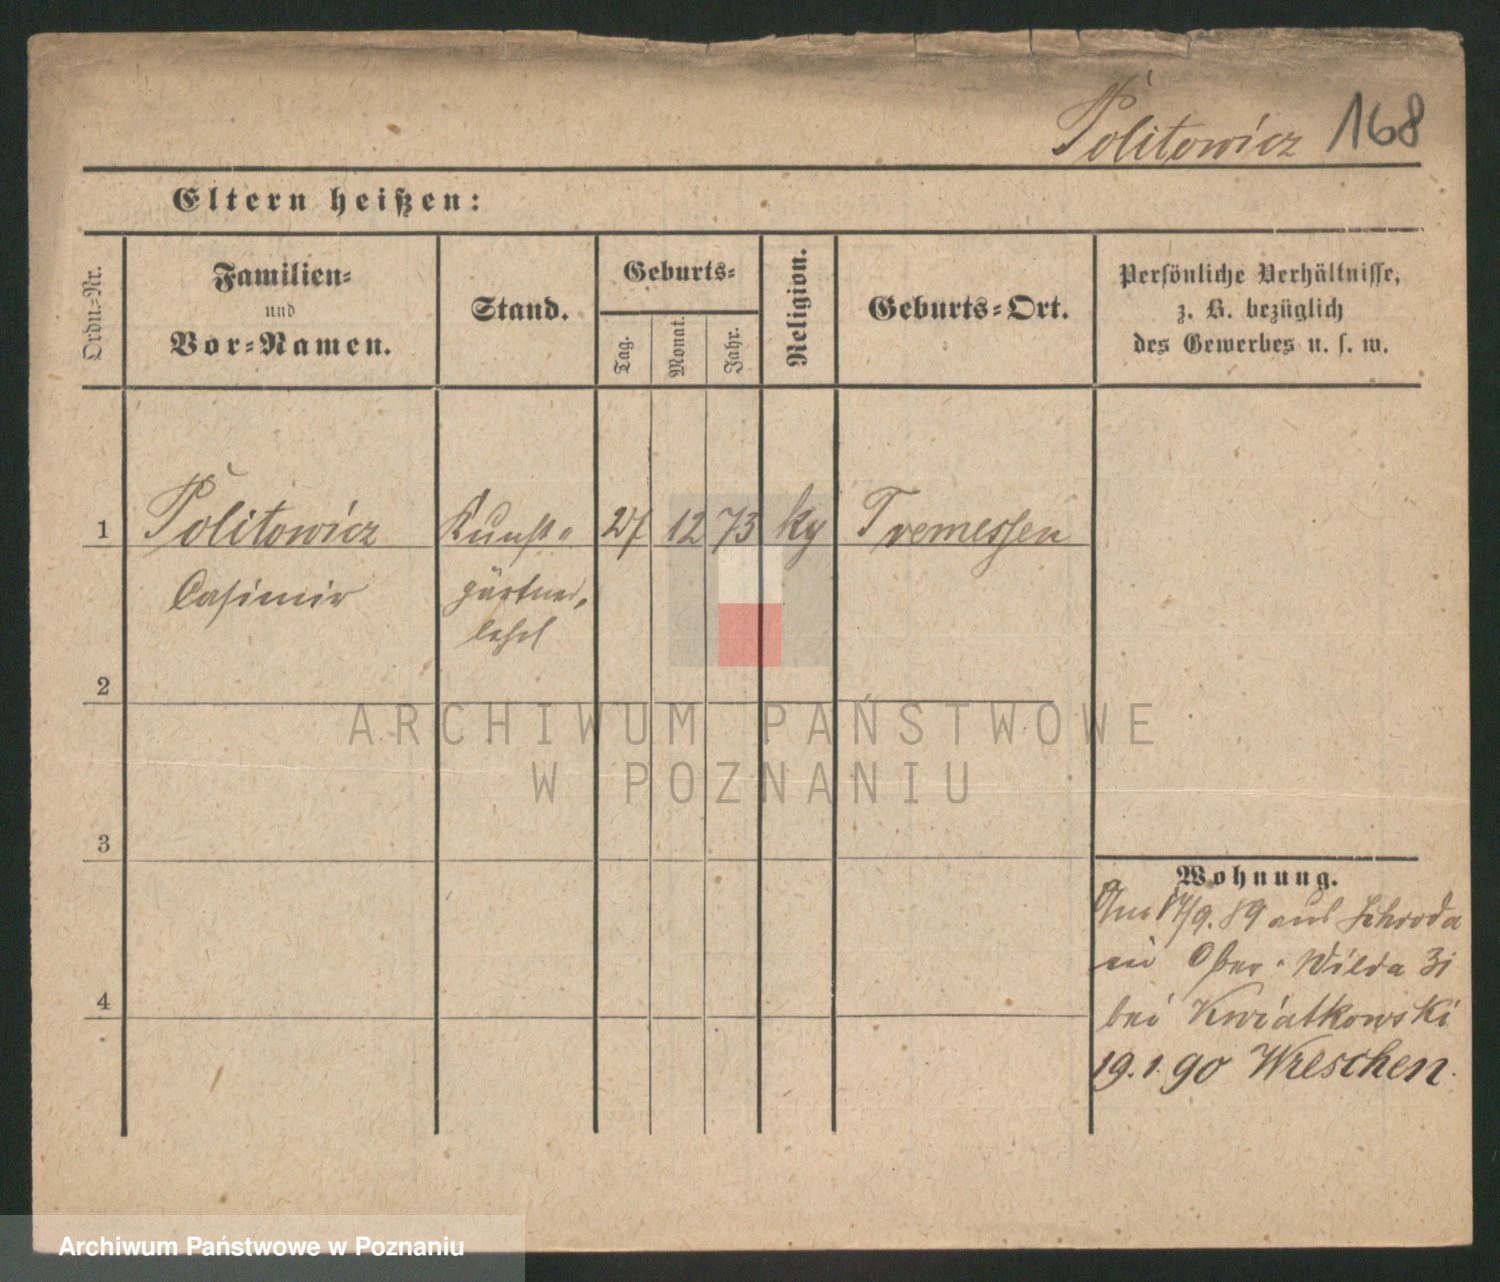 Politowicz 168
Eltern heißen:
Ordn.=Nr.
Familien=
und
Vor=Namen.
Stand.
Geburts=
Tag.
Monat.
Jahr.
Religion.
Geburts=Ort.
Persönliche Verhältnisse,
z. B. bezüglich
des Gewerbes u. s. w.
1 Politowicz Kunst= 27 12 73 Tremessen
Casimir gärtner,
lehrl
2
3
4
Wohnung.
Am 17/9. 89 aus Schroda
in Ober=Wilda 31
bei Kwiatkowski
19.1.90 Wreschen.
ARCHIWUM PAŃSTWOWE
W POZNANIU
Archiwum Państwowe w Poznaniu